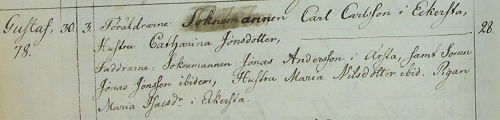 Gustaf, 30. 3. Föräldrarne: Soknemannen Carl Carlsson i Eckersta, 28.
78. Hustru Catharina Jönsdotter,
Faddrarne: Soknemannen Jonas Andersson i Arsta, samt Sonen
Jonas Jonsson ibidem, Hustru Maria Nilsdotter ibid. Pigan
Maria Isacsdr i Eckersta.